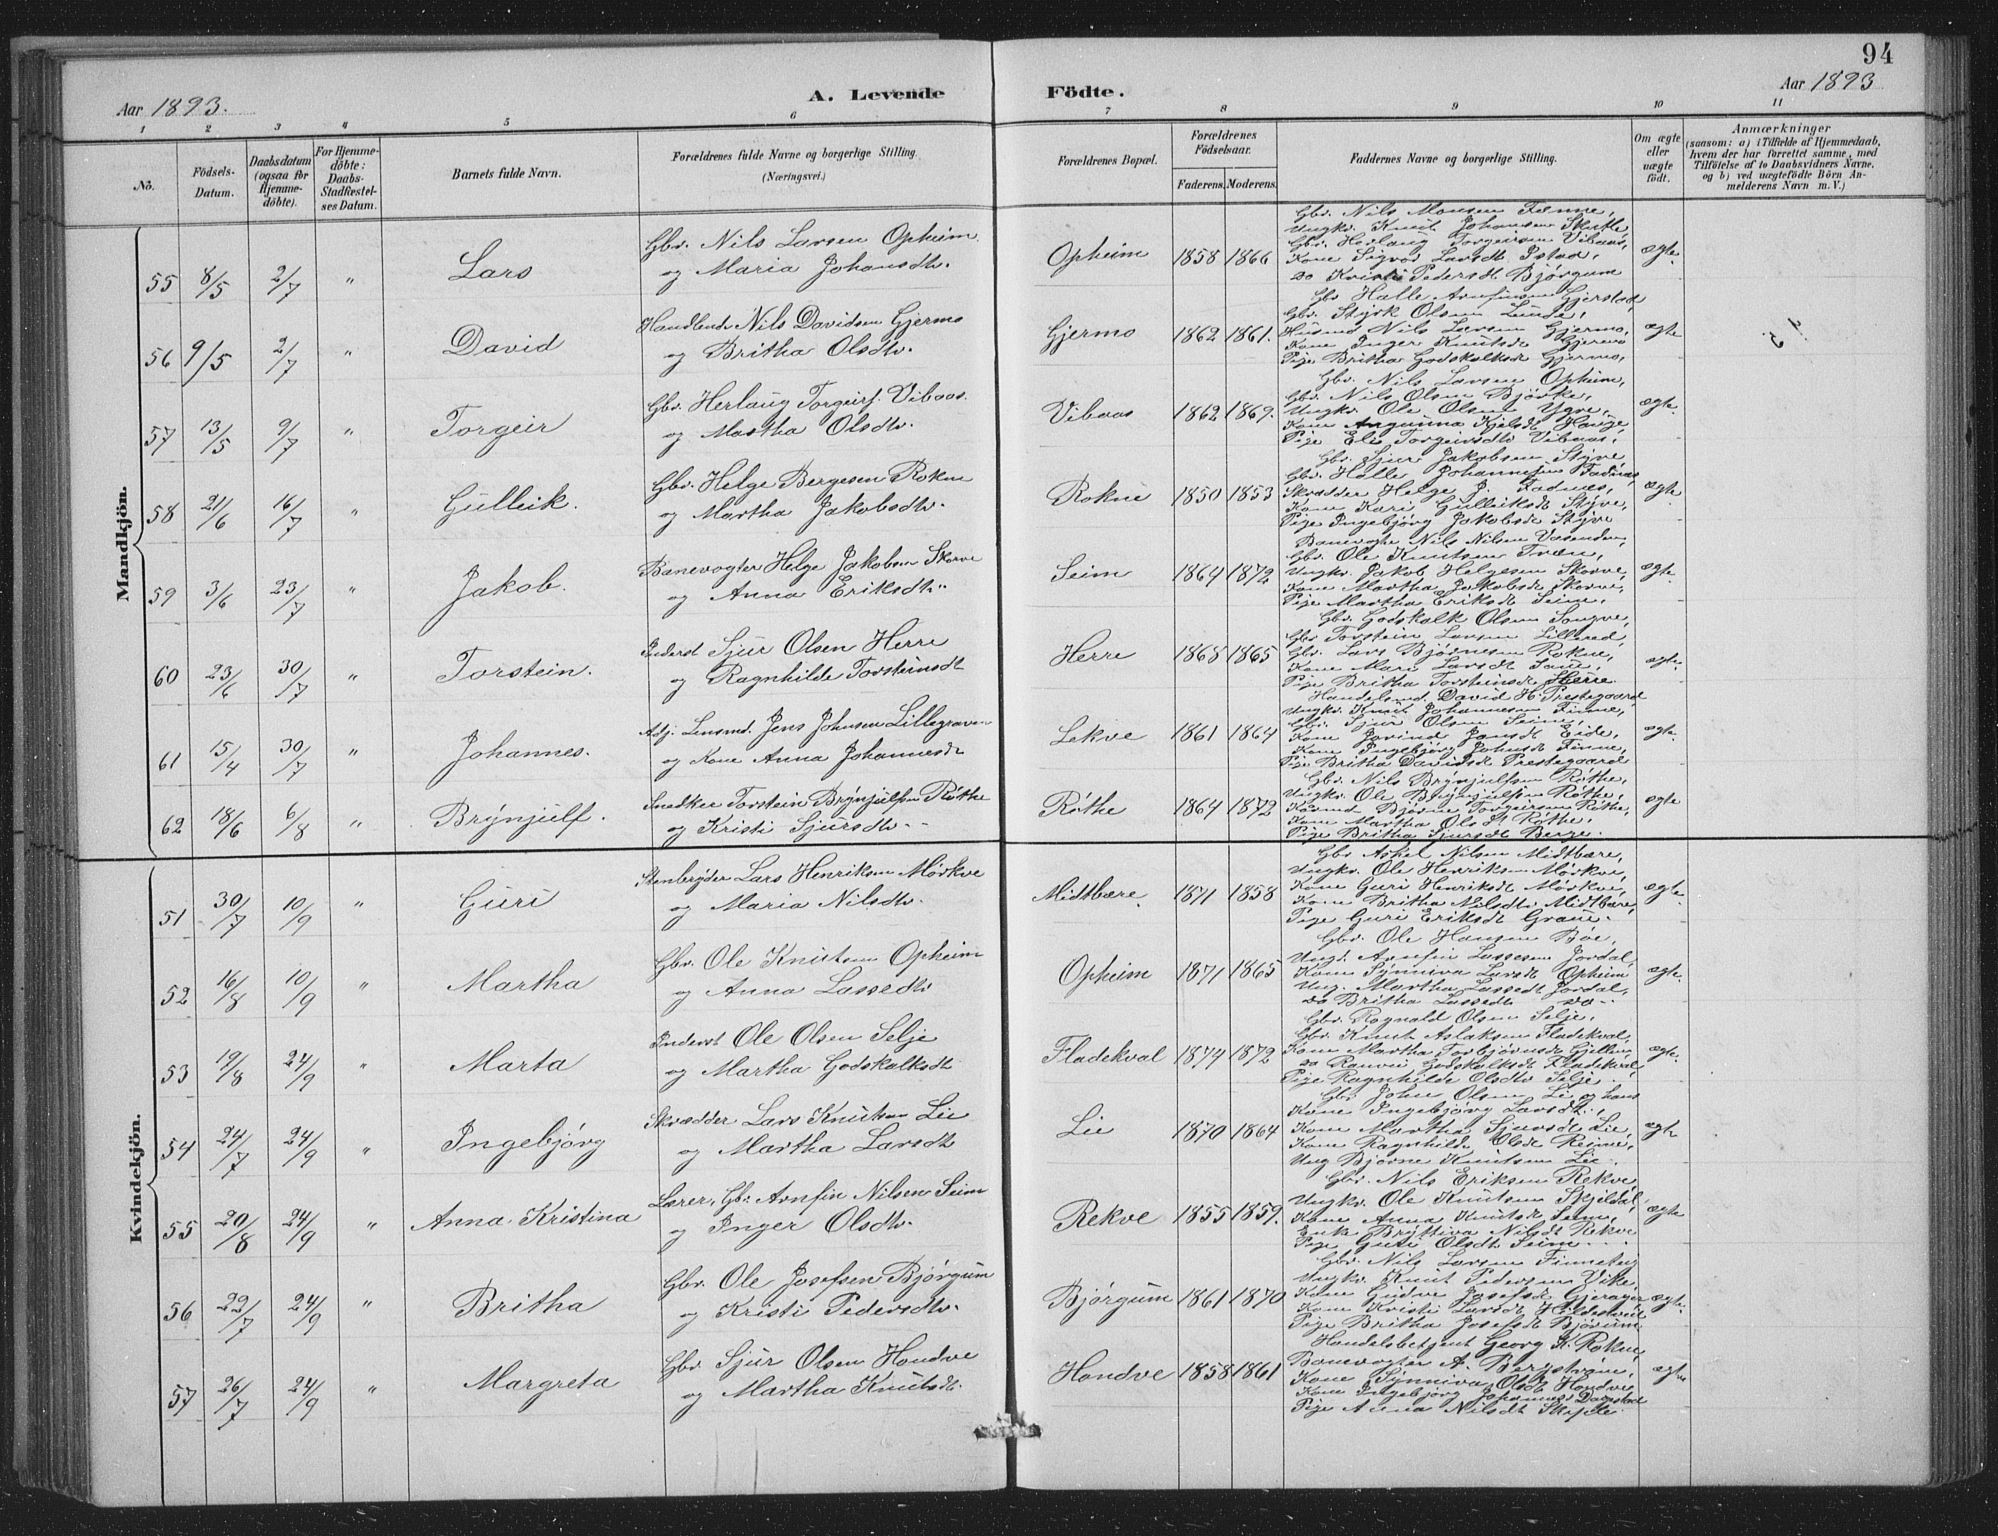 94
Aar 1893.
A. Levende Födte.
Aar 1893
1 2 3 4 5 6 7 8 9 10 11
No.
Födsels-Datum.
Daabsdatum (ogsaa for Hjemmedöbte).
For Hjemmedöbte: Daabs-Stadfestelses Datum.
Barnets fulde Navn.
Forældrenes fulde Navne og borgerlige Stilling. (Næringsvei.)
Forældrenes Bopæl.
Forældrenes Födselsaar.
Faderens. Moderens.
Faddernes Navne og borgerlige Stilling.
Om ægte eller uægte födt.
Anmærkninger
(saasom: a) i Tilfælde af Hjemmedaab, hvem der har forrettet samme, med Tilföielse af to Daabsvidners Navne, og b) ved uægtefödte Börn Anmelderens Navn m. V.)
Mandkjön.
55 8/5 2/7 " Lars
Gbr. Nils Larsen Opheim
og Maria Johansdtr.
Opheim 1858 1866
Gbr. Nils Monsen Fenne,
Ungkr. Knut Johansen Skutle,
Gbr. Herlaug Torgeirsen Vibaas,
Kone Sigvor Larsdt Istad,
do Kristi Pedersdt Bjørgum
ægte
56 9/5 2/7 " David
Handlende Nils Davidsen Gjermo
og Britha Olsdtr.
Gjermo 1862 1861.
Gbr Halle Arnfinsen Gjerstad
Gbr. Styrk Olsen Lunde,
Husmd Nils Larsen Gjermo,
Kone Inger Knutsdt Gjermo
Pige Britha Godskalksdt Gjermo,
ægte
57 13/5 9/7 " Torgeir
Gbr. Herlaug Torgeirs. Vibaas
og Martha Olsdtr.
Vibaas 1862 1869.
Gbr. Nils Larsen Opheim,
Gbr. Nils Olsen Bjørke,
Ungkr. Ole Olsen Ygre,
Kone Angunna Kjelsdt Hauge,
Pige Eli Torgeirsdtr Vibaas,
ægte
58 21/6 16/7 " Gulleik.
Gbr. Helge Bergesen Rokne
og Martha Jakobsdtr.
Rokne 1850 1853
Gbr. Sjur Jakobsen Styve
Gbr. Halle Johannesen Fadnæs
Skrædder Helge J. Fadnæs,
Kone Kari Gulleiksdt Styve,
Pige Ingebjörg Jakobsdt Styve
ægte
59 3/6 23/7 " Jakob.
Banevogter Helge Jakobsen Skorve
og Anna Eriksdtr.
Seim 1864 1872
Banevogter Nils Nilsen Vasenden
Gbr. Ole Knutsen Træn,
Ungkr. Jakob Helgesen Skorve,
Kone Martha Jakobsdt Skorve,
Pige Martha Eriksdt Seim,
ægte.
60 23/6 30/7 " Torstein.
Inderst Sjur Olsen Herre
og Ragnhilde Torsteinsdt
Herre 1868 1865
Gbr. Godskalk Olsen Tongve,
Gbr Torstein Larsen Lillered
Gbr. Lars Bjørnesen Rokne,
Kone Mari Larsdt Sonve,
Pige Britha Torsteinsdt Herre
ægte
61 15/4 30/7 " Johannes.
Adj. Lensmd. Jens Johnsen Lillegraven
og Kone Anna Johannesdt
Lekve 1861 1864
Handelsmd. David H. Prestegaard
Ungkr. Knut Johannesen Finne,
Gbr. Sjur Olsen Seim,
Kone Jorind Jansdt Eide,
Kone Ingebjörg Johnsdt Finne,
Pige Britha Davidsdt Prestegaard
ægte.
62 18/6 6/8 " Brynjulf.
Snedker Torstein Brynjulfsen Röthe
og Kristi Sjursdtr.
Röthe 1864 1872
Gbr. Nils Brynjulfsen Röthe,
Ungkr. Ole Brynjulfsen Röthe,
Kaarmd Bjørne Torgeirsen Röthe,
Kone Martha Olsdt Röthe,
Pige Britha Sjursdt Berge.
ægte
Kvindekjön.
51 30/7 10/9 " Guri
Stenbryder Lars Henriksen Mörkve
og Maria Nilsdtr.
Midtbære 1871 1858
Gbr Askel Nilsen Midtbære,
Ungkr. Ole Henriksen Mörkve,
Kone Guri Henriksdt Mörkve,
Kone Britha Nilsdtr Midtbære,
Pige Guri Eriksdt Graue.
ægte.
52 16/8 10/9 " Martha
Gbr. Ole Knutsen Opheim
og Anna Lassedtr
Opheim 1871 1865
Gbr. Ole Hansen Bøe,
Ungd. Arnfin Lassesen Jordal,
Kone Synniva Larsdt Opheim
Ung. Martha Lassedt Jordal,
do Britha Lassedt do
ægte.
53 19/8 24/9 " Marta
Inderst Ole Olsen Selje
og Martha Godskalksdt
Fladekval 1874 1872
Gbr. Rognald Olsen Selje,
Gbr Knut Aslaksen Fladekval,
Kone Martha Torbjørnsdt Gjellen,
do Ranvei Godskalksdt Fladekval,
Pige Ragnhilde Olsdtr Selje
ægte.
54 24/7 24/9 " Ingebjörg
Skrædder Lars Knutsen Lie
og Martha Larsdt
Lie 1870 1864
Gbr. John Olsen Li og hans
Kone Ingebjörg Larsdt,
Kone Martha Sjursdt Lie,
Kone Ragnhilde Olsdt Reime,
Ung Bjørne Knutsen Lie
ægte
55 20/8 24/9 " Anna Kristina
Lærer, Gbr. Arnfin Nilsen Seim
og Inger Olsdtr.
Rekve 1855 1859.
Gbr. Nils Eriksen Rekve,
Ungkr. Ole Knutsen Skjeldal,
Kone Anna Knutsdt Seim,
Enke Bryttiva Nilsdt Rekve
Pige Guri Olsdt Seim
ægte
56 22/7 24/9 " Britha
Gbr. Ole Josefsen Bjørgum
og Kristi Pedersdtr.
Bjørgum 1861 1870
Gbr. Nils Larsen Finneteig
Ungkr. Knut Pedersen Vike,
Kone Gudve Josefsdt Gjerager
Kone Kristi Larsdt Hildestveit
Pige Britha Josefsdt Bjørgum
ægte.
57 26/7 24/9 " Margreta
Gbr Sjur Olsen Hondve
og Martha Knutsdt.
Hondve 1858 1861
Handelsbetjent Georg K. Rokne,
Banevogter A. Bergstrøm,
Kone Synniva Olsdt Hondve
Kone Ingebjörg Johannesdt
Pige Anna Nilsdt Skiple
ægte